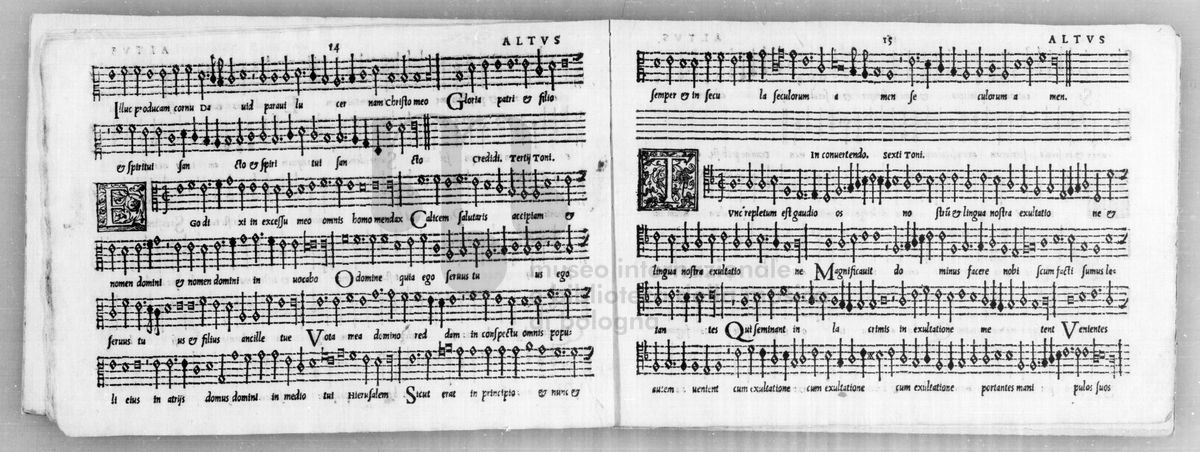 14
ALTVS
Illuc producam cornu Da uid paraui lu cer nam Christo meo Gloria patri & filio
& spiritui san cto & spiri tui san cto Credidi. Tertij Toni.
E Go di xi in excessu meo omnis homo mendax Calicem salutaris accipiam &
nomen domini & nomen domini in uocabo O domine quia ego seruus tu us ego
seruus tu us & filius ancille tue Vota mea domino red dam in conspectu omnis popu
li eius in atrijs domus domini in medio tui Hierusalem Sicut erat in principio & nunc &
15
ALTVS
semper & in secu la seculorum a men se culorum a men.
In conuertendo. Sexti Toni.
T Vnc repletum est gaudio os no strũ & lingua nostra exultatio ne &
lingua nostra exultatio ne Magnificauit do minus facere nobi scum facti sumus le
tan tes Qui seminant in la crimis in exultatione me tent Venientes
autem uenient cum exultatione cum exultatione cum exultatione portantes mani pulos suos
museo internazionale
e biblioteca della musica
di bologna